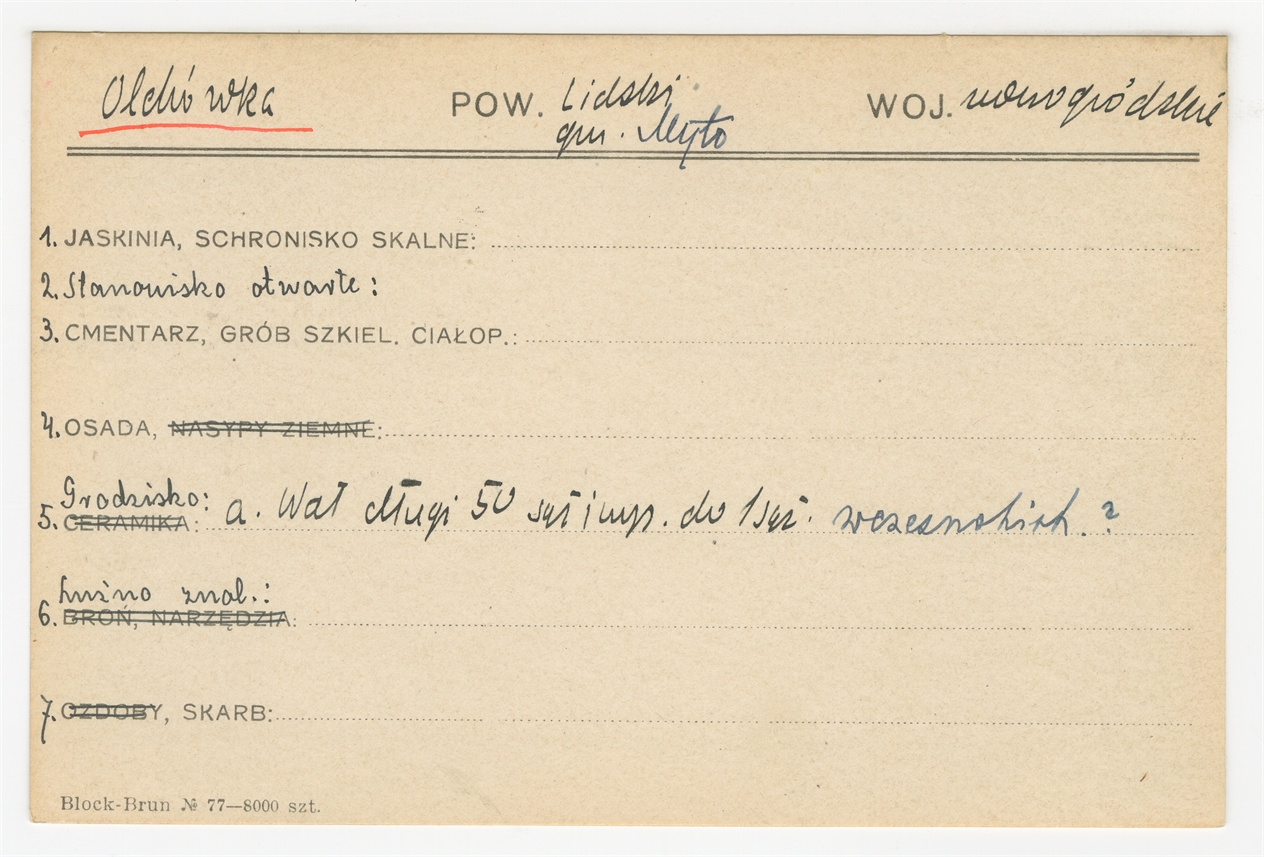 Olchówka POW. Lidski WOJ. nowogródzkie
gm. Myto
1. JASKINIA, SCHRONISKO SKALNE:
2. Stanowisko otwarte:
3. CMENTARZ, GRÓB SZKIEL. CIAŁOP.:
4. OSADA, NASYPY ZIEMNE:
Grodzisko:
5. CERAMIKA: a. Wał długi 50 sąż i wys. do 1 sąż. ?
Luźno znal.:
6. BROŃ, NARZĘDZIA:
7. OZDOBY, SKARB:
Block-Brun № 77—8000 szt.